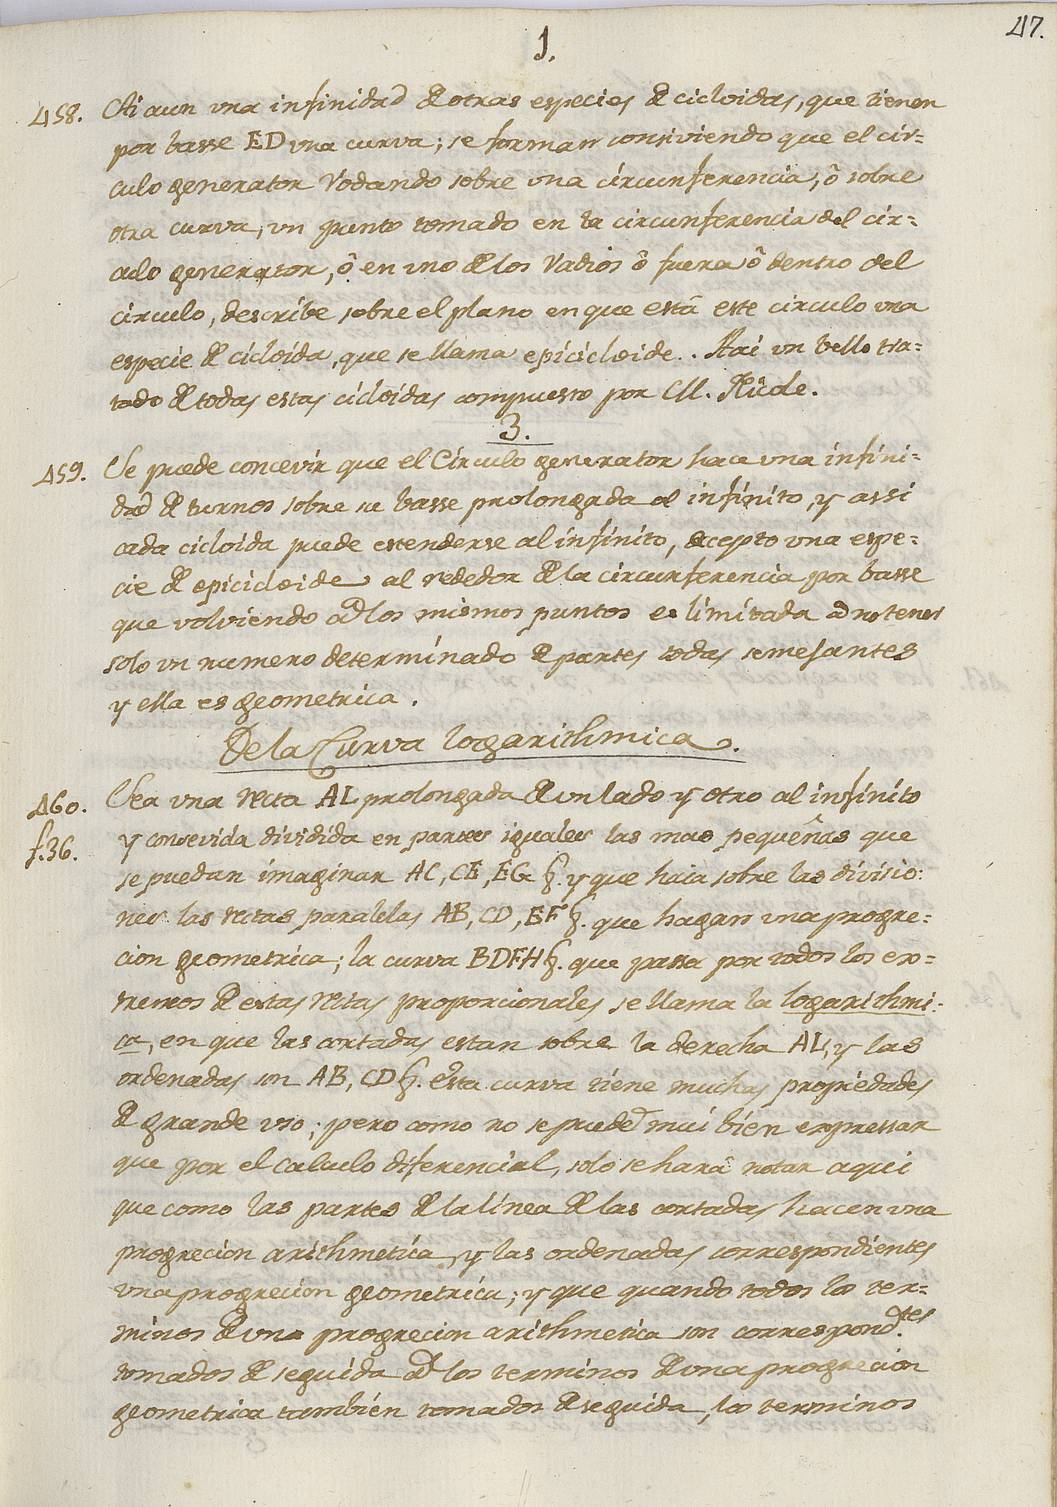 47.
1.
458. Ai aun una infinidad de otras especies de cicloidas, que tienen
por basse ED una curva; se forman conciviendo que el cir=
culo generator Rodando sobre una circunferencia, ô sobre
otra curva, un punto tomado en la circunferencia del cir=
culo generator, ô en uno de los Radios ô fuera ô dentro del
circulo, describe sobre el plano en que està este circulo una
especie de cicloida, que se llama epicicloide.. Hai un bello tra=
tado de todas estas cicloidas compuesto por M.
3.
459. Se puede concevir que el Circulo generator hace una infini=
dad de turnos sobre su basse prolongada al infinito, y assi
cada cicloida puede estenderse al infinito, ecepto una espe=
cie de epicicloide al rededor de la circunferencia por basse
que volviendo a los mismos puntos es limitada a no tener
solo un numero determinado de partes todas semejantes
y ella es geometrica.
De la Curva logarithmica.
460. Sea una recta AL prolongada de un lado y otro al infinito
f.36. y consevida dividida en partes iguales las mas pequeñas que
se puedan imaginar AC, CE, EG &. y que haia sobre las divisio:
nes las rectas paralelas AB, CD, EF &. que hagan una progre=
cion geometrica; la curva BDFH &. que passa por todos los ex=
tremos de estas rectas proporcionales se llama la logarithmi=
ca, en que las cortadas estan sobre la derecha AL, y las
ordenadas son AB, CD &. esta curva tiene muchas propiedades
de grande uso; pero como no se puede mui bien expressar
que por el calculo diferencial, solo se harà notar aqui
que como las partes de la linea de las cortadas hacen una
progrecion arithmetica, y las ordenadas correspondientes
una progrecion geometrica; y que quando todos los ter=
minos de una progrecion arithmetica son correspond.tes
tomados de seguida a los terminos de una progrecion
geometrica tambien tomados de seguida, los terminos